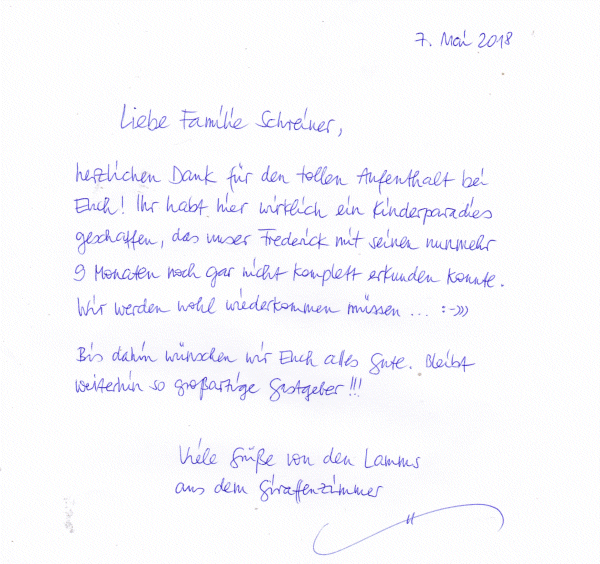 7. Mai 2018
Liebe Familie Schreiner,
herzlichen Dank für den tollen Aufenthalt bei
Euch! Ihr habt hier wirklich ein Kinderparadies
geschaffen, das unser Frederick mit seinen nunmehr
9 Monaten noch gar nicht komplett erkunden konnte.
Wir werden wohl wiederkommen müssen ... :-)))
Bis dahin wünschen wir Euch alles Gute. Bleibt
weiterhin so großartige Gastgeber!!!
Viele Grüße von den Lamms
aus dem Giraffenzimmer